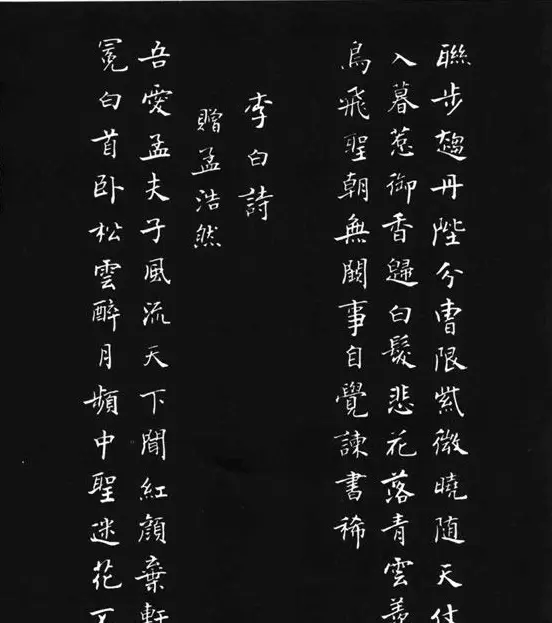 聯步趨丹陛分曹限紫微曉随天仗
入暮惹御香歸白髮悲花落青雲羨
鳥飛聖朝無闕事自覺諫書稀
李白詩
贈孟浩然
吾愛孟夫子風流天下聞紅顏棄軒
冕白首卧松雲醉月頻中聖迷花不